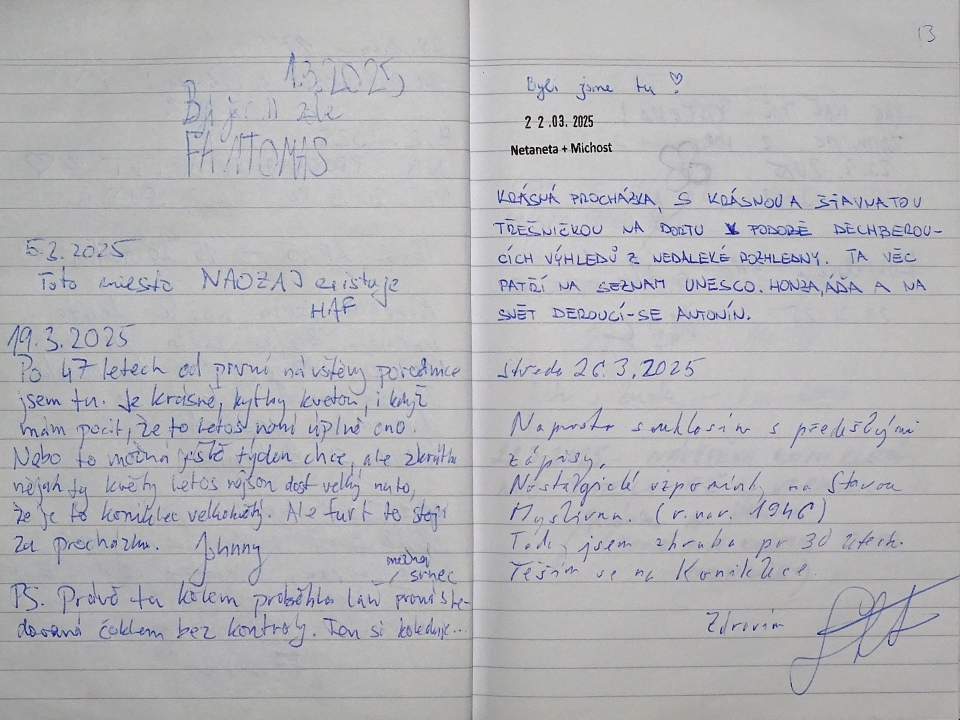 1.3.2025,
FANTOMAS
5.3.2025
Toto miesto NAOZAJ existuje
HAF
19.3.2025
Po 47 letech od první návštěvy porednice
jsem tu. Je krásně, kytky kvetou, i když
mám pocit, že to letos není úplně ono.
Nebo to možná ještě týden chce, ale zkrátka
nějak ty květy letos nejson dost velký na to,
že je to koniklec velkokvětý. Ale furt to stojí
za procházku. Johnny
možná
/ srnec
PS. Právě tu kolem proběhla laň pronásle-
dovaná čoklem bez kontroly. Ten si koleduje...
13
Byli jsme tu ♡
22.03.2025
Netaneta + Michost
KRÁSNÁ PROCHÁZKA, S KRÁSNOU A ŠŤAVNATOU
TŘEŠNIČKOU NA DORTU V PODOBĚ DECHBEROU-
CÍCH VÝHLEDŮ Z NEDALEKÉ ROZHLEDNY. TA VĚC
PATŘÍ NA SEZNAM UNESCO. HONZA, ÁĎA A NA
SVĚT DEROUCÍ-SE ANTONÍN.
středa 26.3.2025
Naprosto souhlasím s předešlými
zápisy.
Nostalgické vzpomínky na Starou
Myslivnu. (r. nar. 1946)
Tady jsem zhruba po 30 letech.
Těším se na Koniklece.
Zdravím